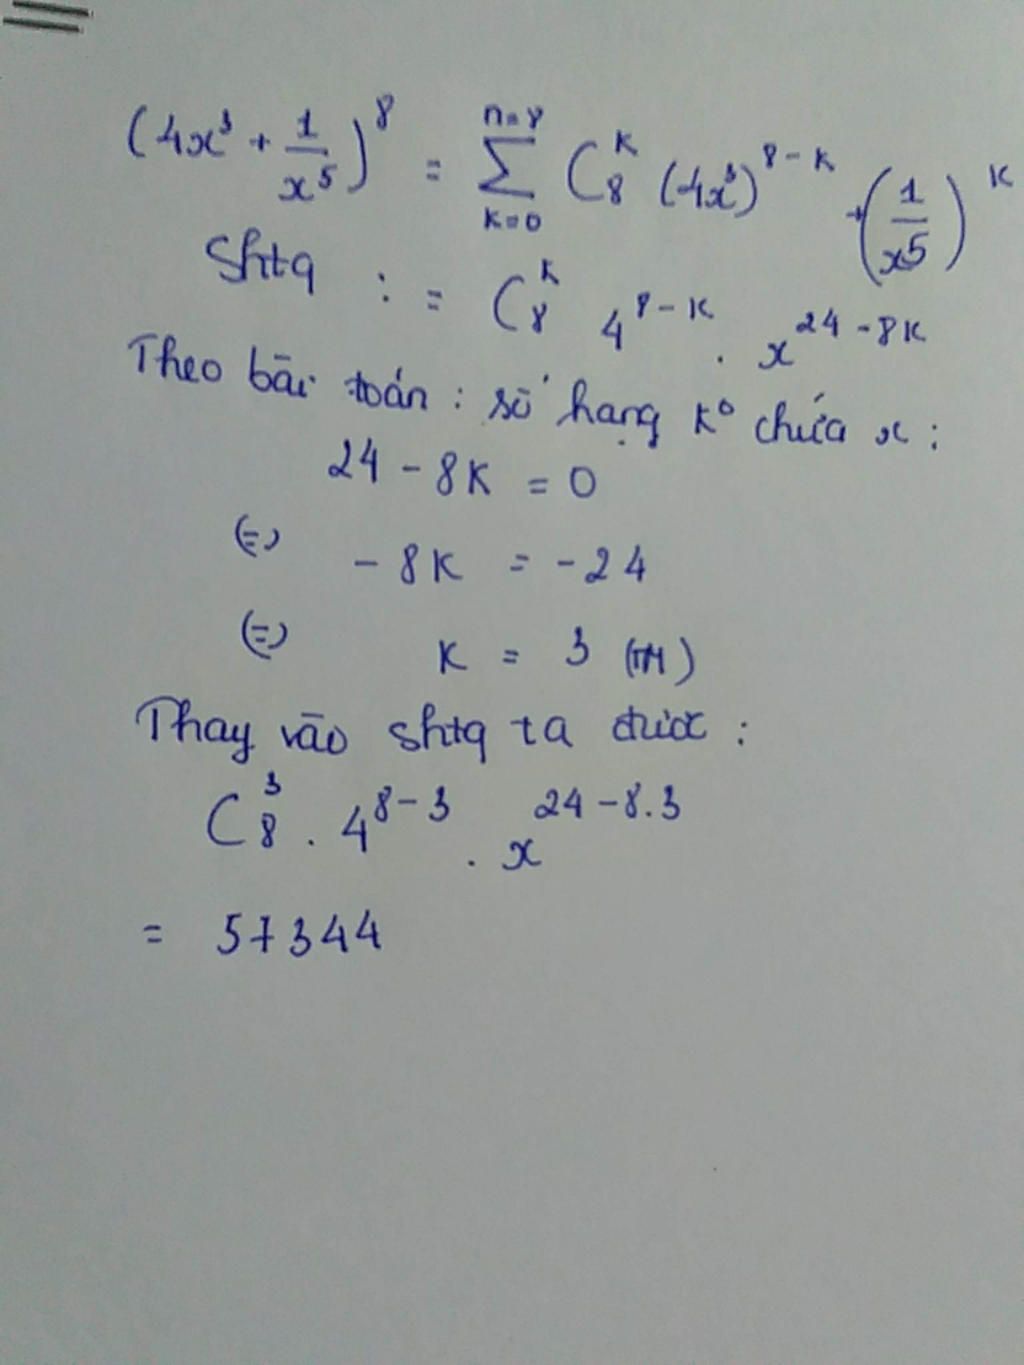 (4x³ + 1/x⁵)⁸ = ∑ₖ₌₀ⁿ⁼⁸ C₈ᵏ (4x³)⁸⁻ᵏ + (1/x⁵)ᵏ
Shtq : = C₈ᵏ 4⁸⁻ᵏ . x²⁴⁻⁸ᵏ
Theo bài toán : số hạng k⁰ chứa x :
24 - 8k = 0
(=) - 8k = -24
(=) k = 3 (TM)
Thay vào shtq ta được :
C₈³ . 4⁸⁻³ . x²⁴⁻⁸·³
= 57344